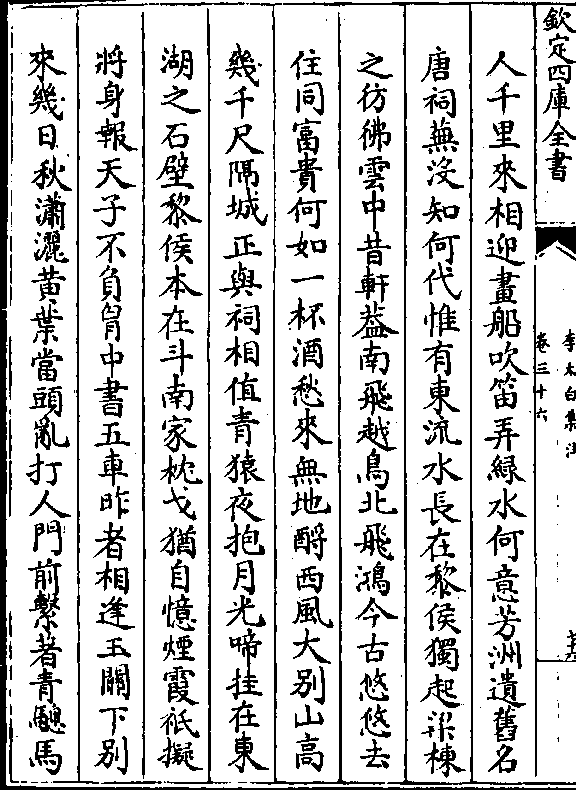 欽定四庫全書
李太白集注
卷三十六
人千里來相迎畫船吹笛弄緑水何意芳洲遺舊名
唐祠蕪沒知何代惟有東流水長在黎侯獨起梁棟
之彷彿雲中昔軒葢南飛越鳥北飛鴻今古悠悠去
住同富貴何如一杯酒愁來無地酹西風大别山高
幾千尺隔城正與祠相值青猿夜抱月光啼挂在東
湖之石壁黎侯本在斗南家枕戈猶自憶煙霞祇擬
將身報天子不負胷中書五車昨者相逢玉關下别
來幾日秋瀟灑黄葉當頭亂打人門前繫著青驄馬